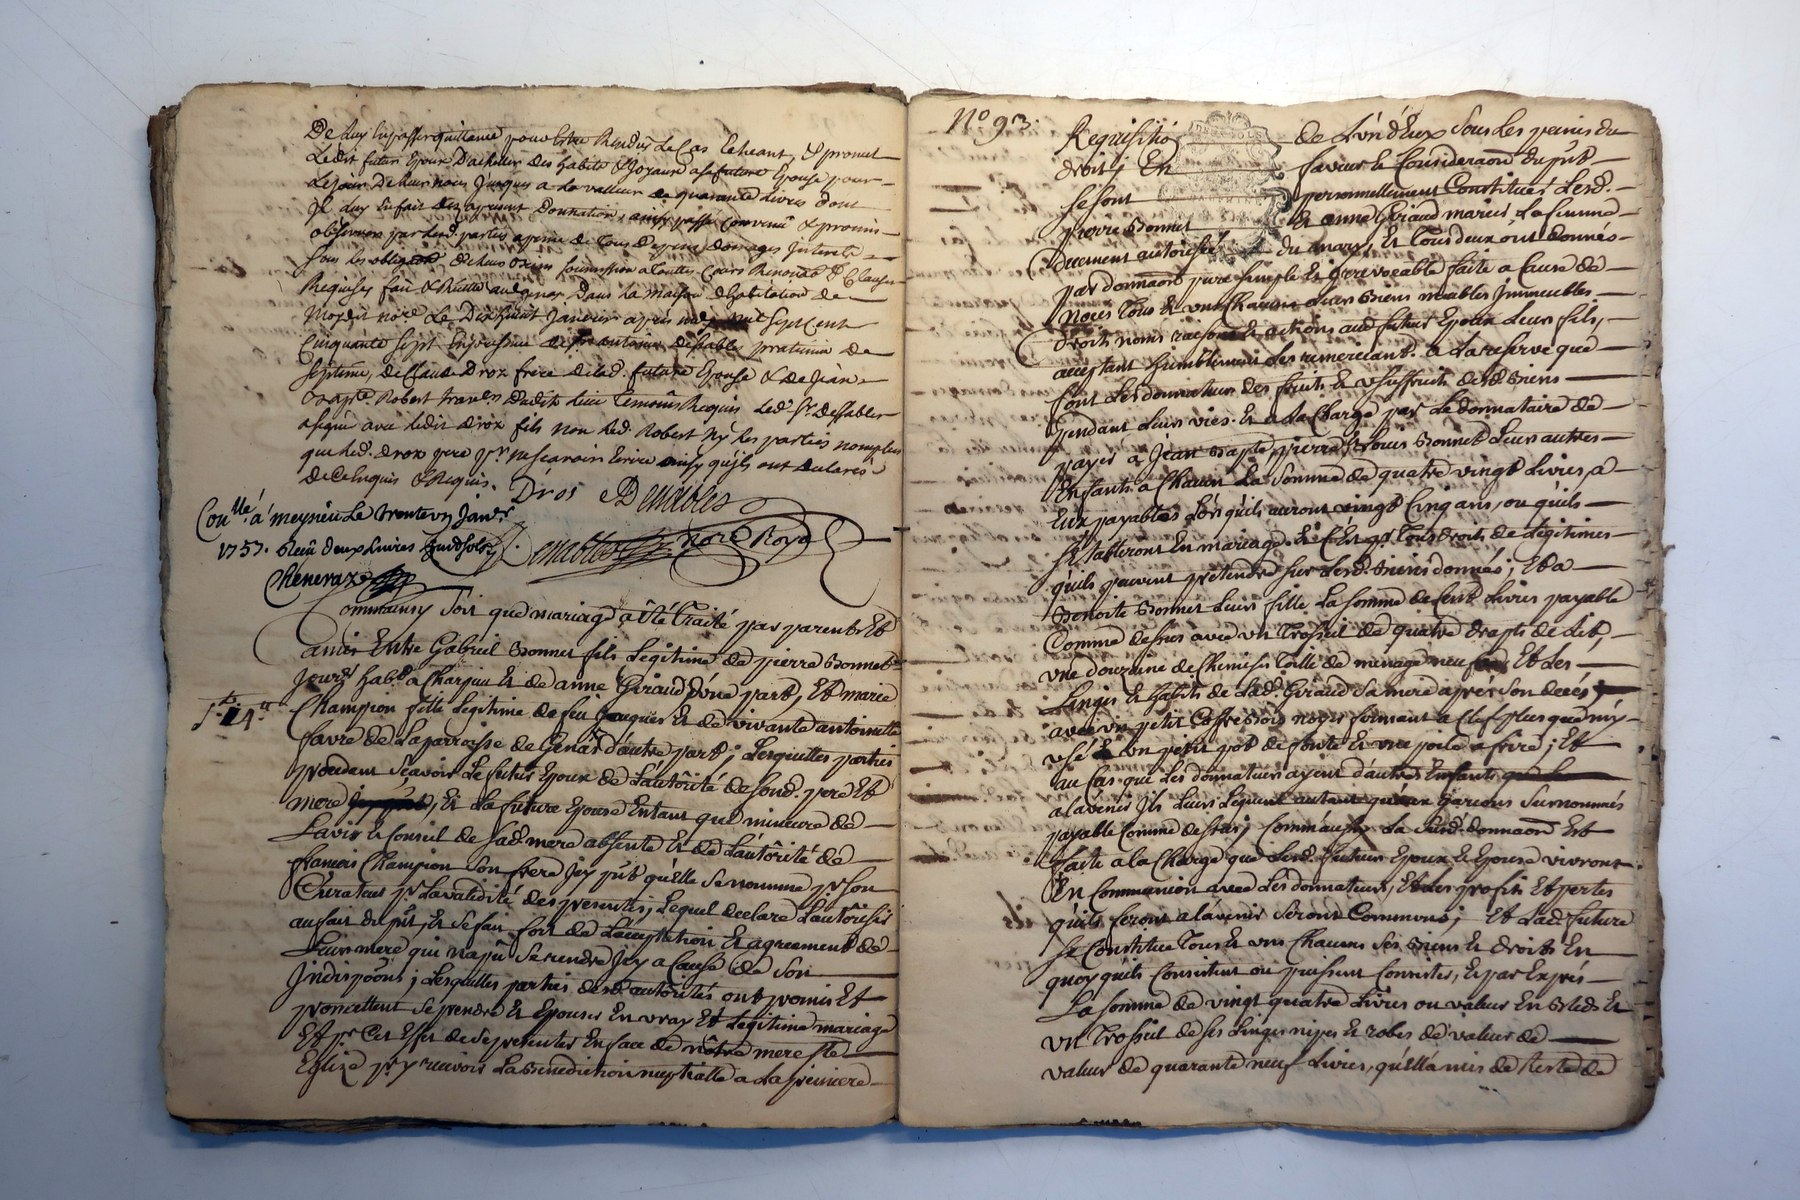 De luy en passer quittance pour estre Rendus Le Cas Echeant, & promet
Ledit futur Epoux d'achetter des habits & Joyaux a sa future Epouse pour
Le jour De leurs noces Jusques a La valleur de quarante livres dont
Il luy En fait des apresent Donnation, ainsy passé Convenu & promis
observer par lesd. parties a peine de Tous Depens domages Interets
sous les obligaons De biens soumission a Toutes Cours Renoncé & Clauses
Requises fait & Recitté aud. Dans La maison d'habitation de
Moydit nore Le Dixhuit Janvier apres midy mil sept Cent
Cinquante sept En presence de sr antoine desrables praticien de
septeme, de Claude Droz frere de lad. future Epouse & de Jean
Bapte. Robert travr. dudit Lieu Temoins Requis Led. Sr. desrables
a signé avec ledit droz fils non led. Robert Ny les parties non plus
que led. droz pere pr. ne scavoir Ecrire ainsy qu'ils ont declarés
De ce Enquis & Requis. Dros Desrables
Conllé. a meysieu Le trente un Janvr.
1757. Reçu deux Livres huit sols
nore Royal
Cheneraz
Comm'ainsy soit que mariage a été Traité par parents Et
amis Entre Gabriel Bonnet fils Legitime de pierre Bonnet
Jourer habt. a Chargieu Et de anne Giraud d'une part, Et marie
Champion fille Legitime de feu Jacques Et de vivante antoinette
favre de Laparroisse de Genas d'autre part; Lesquelles parties
procedant Scavoir Le futur Epoux de L'autôrité de sesd. pere Et
mere, Et La future Epouse Entant que mineure de
L'avis & Conseil de sad. mere absente Et de L'autôrité de
françois Champion son frere Jcy pnt qu'elle se nomme pr. son
Curateur pr. La validité des presentes, Lequel declare L'autoriser
au fait du pnt, Et se fait fort de L'acceptation Et agreement de
Leur mere qui n'a pû se rendre Jcy a Cause de son
Indisposion; Lesquelles parties desd. autorités ont promis Et
promettent se prendre Et Epouser En vray Et Legitime mariage
Et pr. Cet Effet de se presenter En face de nôtre mere Ste.
Eglize pr. y recevoir La Benediction nuptialle a La premiere
No 93.
Requisitiō de L'un d'Eux sous Les peines du
droit; En faveur & Consideraon du pnt
se sont personnellement Constitués Lesd.
pierre Bonnet Et anne Giraud mariés La femme
Duement autorisée du mary, Et Tous deux ont donnés
par donnaon pure simple Et Jrrevocable faite a Cause de
noces Tous Et vns Chacuns Leurs Biens meubles Jmmeubles
droits noms raisons & actions aud. futur Epoux Leur fils,
acceptant humblement Les remerciant. a La reserve que
font Les donnateurs des fruits Et vsuffruits desd. Biens
pendant Leurs vies. Et a La Charge par Le donnataire de
payer a Jean Bapte pierre & Louis Bonnet Leurs autres
Enfants a Chacun La Somme de quatre vingt Livres, a
Eux payables Lorsqu'ils auront vingt Cinq ans, ou qu'ils
s'Etabliront En mariage. Et C'est pr. Tous droits de Legitimes
qu'ils peuvent pretendre sur Lesd. Biens donnés; Et a
Benoite Bonnet Leur fille La somme de Cent Livres payable
Comme dessus avec vn Trossel de quatre draps de Lit,
vne douzaine de Chemises Toille de menage neuf Et des
Linges Et habits de Lad. Giraud sa mere apprés son decés
avec vn petit Coffre Bois noyer fermant a Clef plus que my
vsé & vn petit pot de fonte Et vne poile a frire; Et
au Cas que Les donnateurs ayent d'autres Enfants
a L'avenir Jls Leurs Leguent autant qu'aux Garcons surnommés
payable Comme dessus; Comm'aussy La susd. donnaon Est
faite a la Charge que Lesd. futurs Epoux & Epouse vivront
En Communion avec Les donnateurs, Et Les profits Et pertes
qu'ils feront a L'avenir seront Communs; Et Lad. future
se Constitue Tous Et vns Chacuns Ses Biens Et droits En
quoy qu'ils Consistent ou puissent Consister, & par Exprés
La somme de vingt quatre Livres ou valeur En Bled, Et
vn Trossel de ses Linges nipes Et robes de valeur de
valeur de quarante neuf Livres, qu'ell'a mis de Reste de